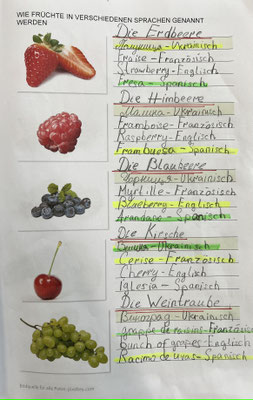 WIE FRÜCHTE IN VERSCHIEDENEN SPRACHEN GENANNT
WERDEN
Die Erdbeere
- Ukrainisch
Fraise - Französisch
Strawberry - Englisch
Fresa - Spanisch
Die Himbeere
Малина - Ukrainisch
Framboise - Französisch
Raspberry - Englisch
Frambuesa - Spanisch
Die Blaubeere
Чорниця - Ukrainisch
Myrtille - Französisch
Blueberry - Englisch
Arandano - Spanisch
Die Kirsche
Вишня - Ukrainisch
Cerise - Französisch
Cherry - Englisch
Iglesia - Spanisch
Die Weintraube
Виноград - Ukrainisch
grappe de raisins - Französisch
bunch of grapes - Englisch
Racimo de uvas - Spanisch